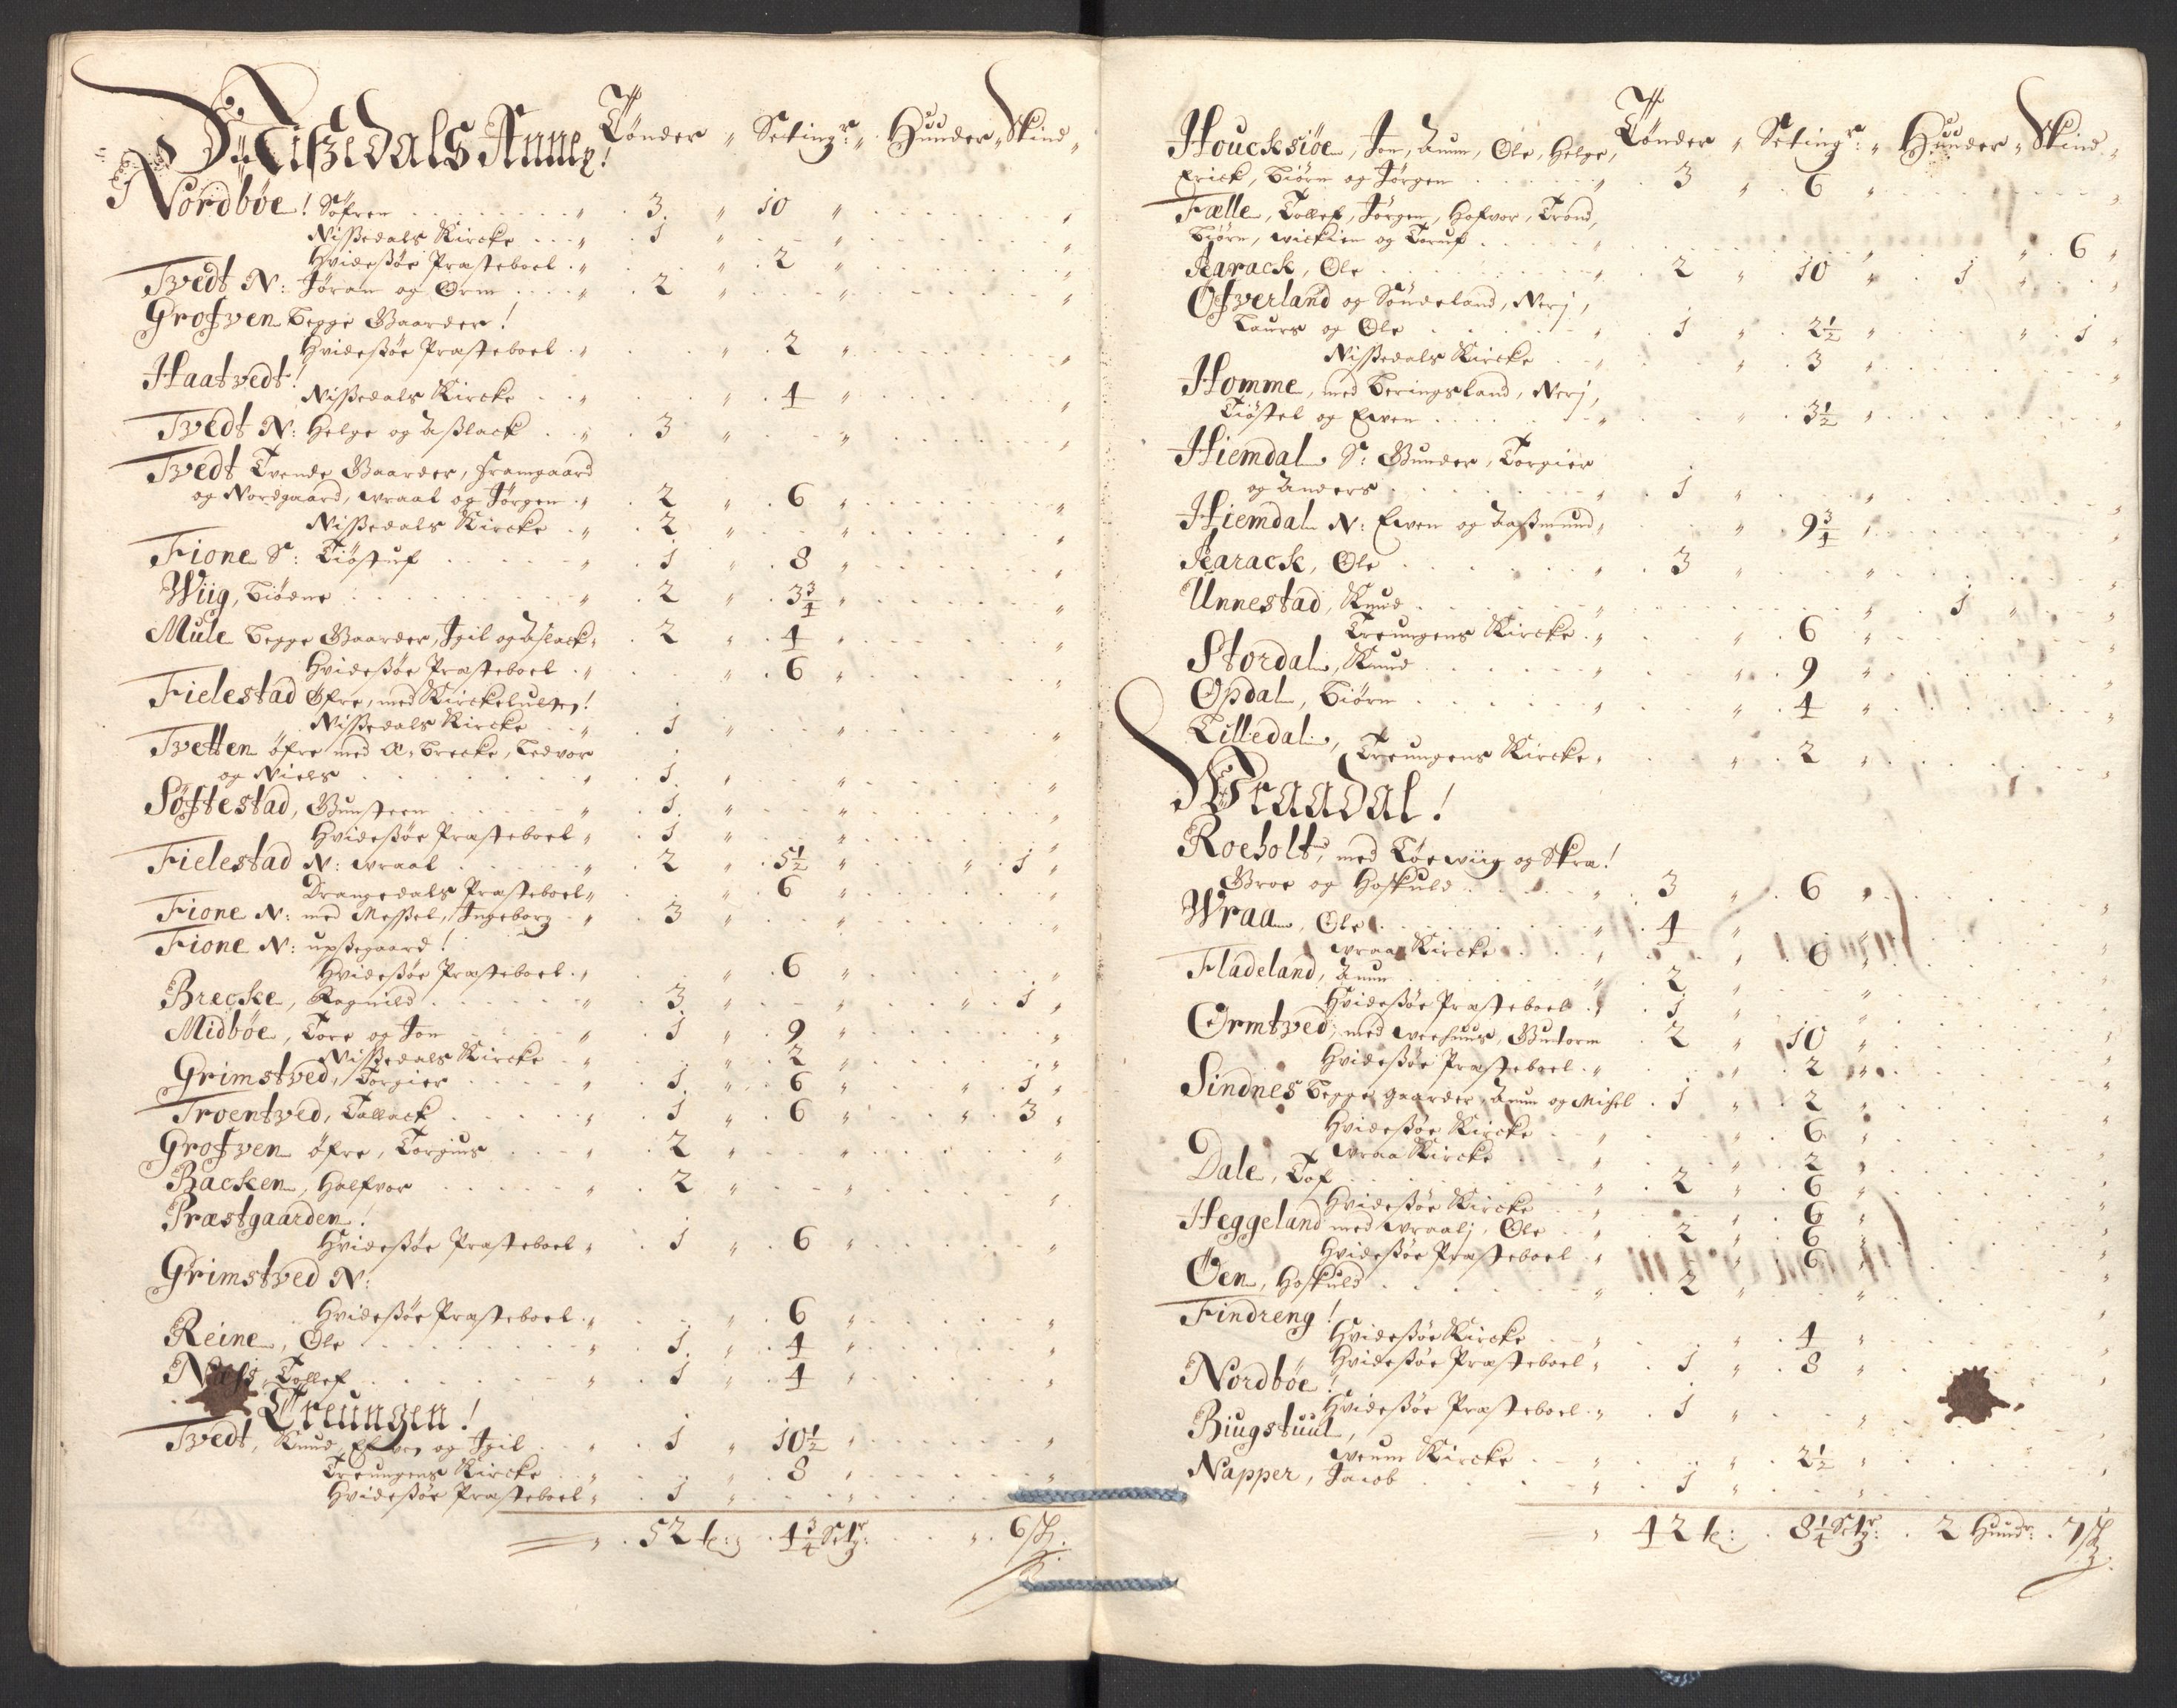 Nißedals Annex! Tönder „ Setingr: „ Hunder „ Skind „
Nordböe! Söfren „ 3 „ 10 „
Nißedals Kircke „ 1 „
Hvideßöe Præsteboel „ 2 „
Tvedt N: Jöran og Orm „ 2 „
Grofven begge Gaarder!
Hvideßöe Præsteboel „ 2 „
Haatvedt!
Nißedals Kircke „ 4 „
Tvedt N: Helge og Aßlack „ 3 „
Tvedt Tvende Gaarder, framgaard
og Nordgaard, wraal og Jörgen „ 2 „ 6 „
Nißedals Kircke „ 2 „
Fione S: Tiöstuf „ 1 „ 8 „
Wiig, Biödne „ 2 „ 3¾ „
Mule begge Gaarder, Igil og Aslack „ 2 „ 4 „
Hvideßöe Præsteboel „ 6 „
Fielestad Öfre, med Kirckelulten!
Nißedals Kircke „ 1 „
Tvetten öfre med Brecke, Ledvor
og Niels „ 1 „
Söftestad, Gunsteen „ 1 „
Hvideßöe Præsteboel „ 1 „
Fielestad N: wraal „ 2 „ 5½ „ „ 1 „
Drangedals Præsteboel „ 6 „
Fione N: med Meßel, Ingeborg „ 3 „
Fione N: upsegaard!
Hvideßöe Præsteboel „ 6 „
Brecke, Ragnild „ 3 „ „ 1 „
Midböe, Tore og Jon „ 1 „ 9 „
Nißedals Kircke „ 2 „
Grimstved, Torgier „ 1 „ 6 „ „ 1 „
Troentved, Tallack „ 1 „ 6 „ „ 3 „
Grofven öfre, Torgiuls „ 2 „
Backen, Halfvor „ 2 „
Præstgaarden!
Hvideßöe Præsteboel „ 1 „ 6 „
Grimstved N:
Hvideßöe Præsteboel „ 6 „
Reine, Ole „ 1 „ 4 „
Næss, Tollef „ 1 „ 4 „
Treungen!
Tvedt, Knud, Efven og Igil „ 1 „ 10½ „
Treungens Kircke „ 8 „
Hvideßöe Præsteboel „ 1 „
„ 52 t: „ 4¾ Setr: „ 6 sk:
Houcksiöe, Jon, Anun, Ole, Helge, Tönder „ Setingr: „ Hunder „ Skind „
Erick, Biörn og Jörgen „ 3 „ 6 „
Fælle, Tollef, Jörgen, Hafvor, Trond,
Biörn, wickien og Toruf „ 6 „
Karack, Ole „ 2 „ 10 „ 1 „
Ofverland og Sönderland, Nerj,
Laurs og Ole „ 1 „ 2½ „ „ 1 „
Nißedals Kircke „ 3 „
Homme, med Beringsland, Nerj,
Tiöstel og Even „ 3½ „
Hiemdal S: Gunder, Torgier
og Anders „ 1 „
Hiemdal N: Even og Aaßmund „ 9¾ „
Karack, Ole „ 3 „
Unnestad, Knud „ 1 „
Treungens Kircke „ 6 „
Stordal, Knud „ 9 „
Opdal, Biörn „ 4 „
Lilledal, Treungens Kircke „ 2 „
Wraadal!
Roeholt, med Löewiig og Skra!
Groe og Hoskuld „ 3 „ 6 „
Wraa, Ole „ 4 „
wraa Kircke „ 6 „
Fladeland, Anun „ 2 „
Hvideßöe Præsteboel „ 1 „
Ormtved, med weehuus, Guttorm 2 „ 10 „
Hvideßöe Præsteboel „ 2 „
Sindnes begge gaarder, Anun og Michel 1 „ 2 „
Hvideßöe Kircke „ 6 „
wraa Kircke „ 2 „
Dale, Tof „ 2 „ 6 „
Hvideßöe Kircke „ 6 „
Heggeland med wraalj, Ole „ 2 „ 6 „
Hvideßöe Præsteboel „ 6 „
Öen, Hoskuld „ 2 „
Findreng!
Hvideßöe Kircke „ 4 „
Hvideßöe Præsteboel „ 1 „ 8 „
Nordböe!
Hvideßöe Præsteboel „ 1 „
Biugstuul,
weum Kircke „ 2½ „
Napper, Jacob „ 1 „
„ 42 t: 8¼ Setr: 2 Hundr: 7 sk: